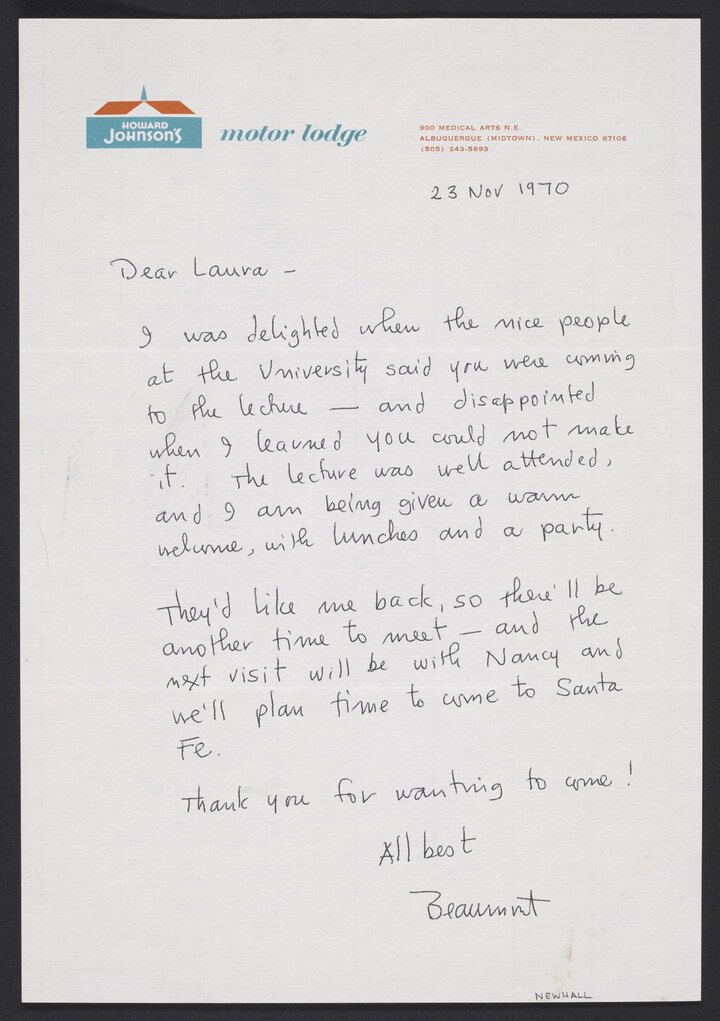 HOWARD
JOHNSON'S
motor lodge
900 MEDICAL ARTS N.E.
ALBUQUERQUE (MIDTOWN), NEW MEXICO 87106
(505) 243-5693
23 Nov 1970
Dear Laura –
I was delighted when the nice people
at the University said you were coming
to the lecture — and disappointed
when I learned you could not make
it. The lecture was well attended,
and I am being given a warm
welcome, with lunches and a party.
They'd like me back, so there'll be
another time to meet – and the
next visit will be with Nancy and
we'll plan time to come to Santa
Fe.
Thank you for wanting to come!
All best
Beaumont
NEWHALL